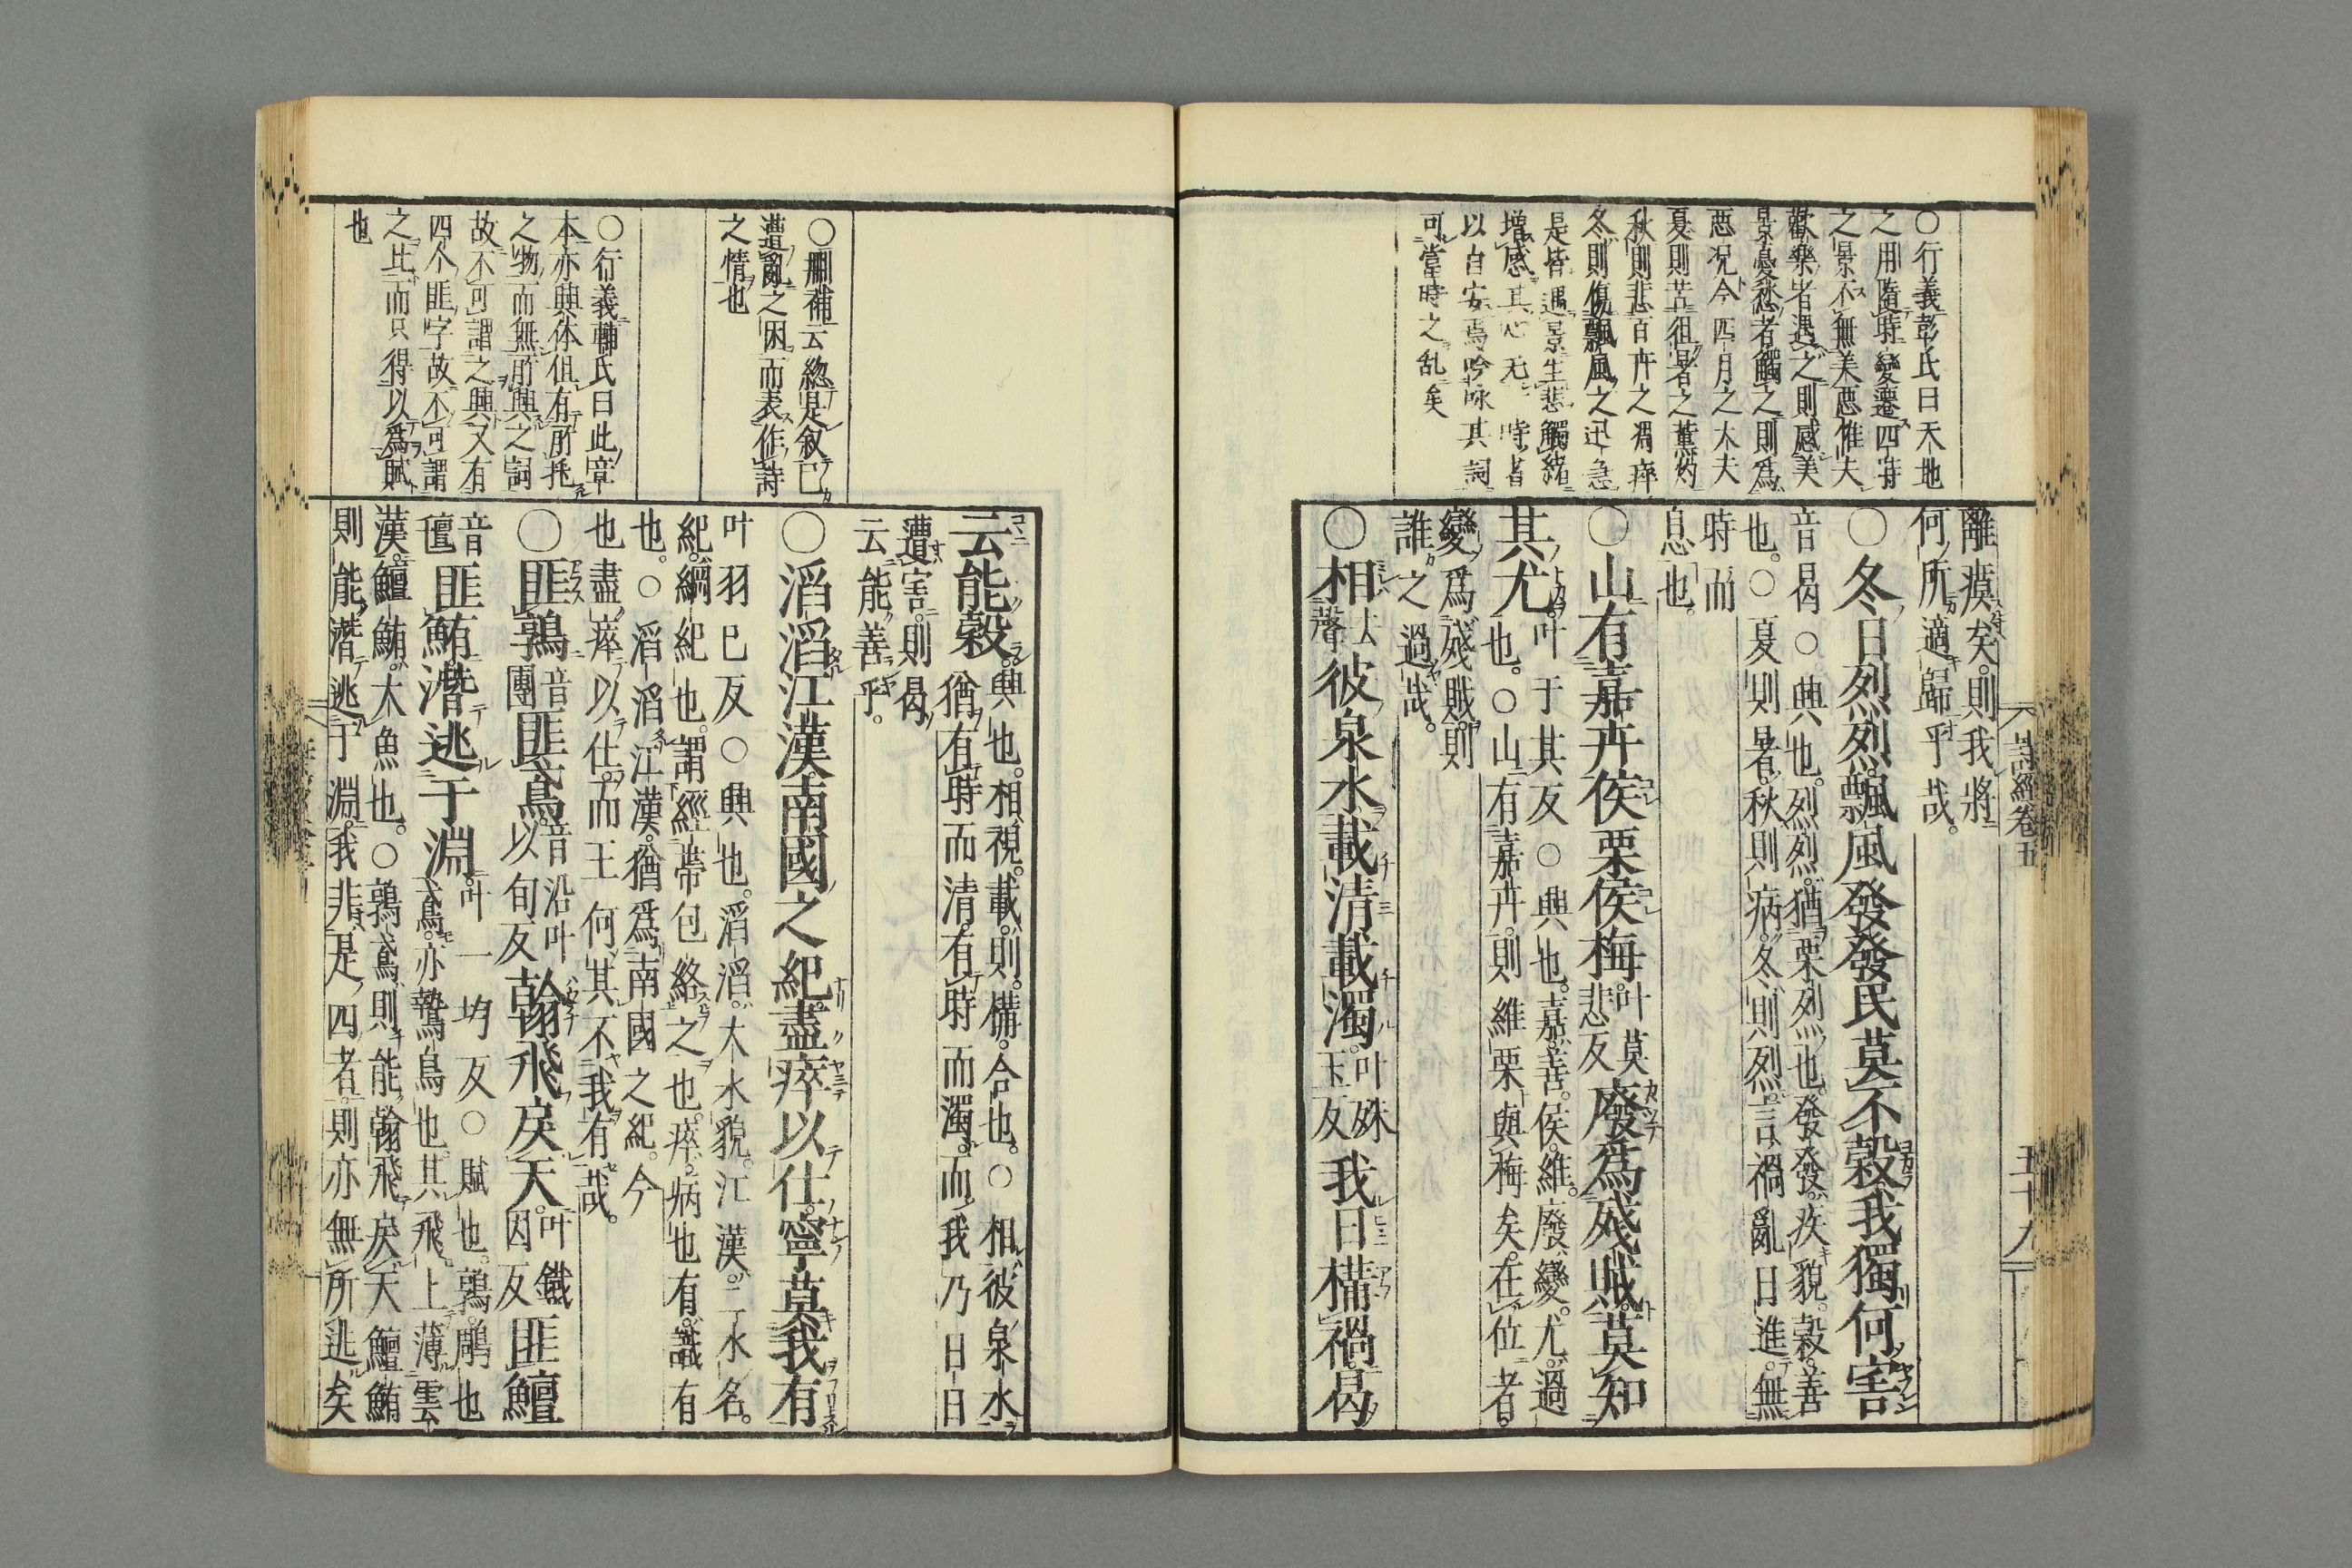 ○行義彭氏曰天地
之用隨時變遷四時
之景不無美惡惟夫
歡樂者遇之則感美
景憂愁者觸之則爲
惡况今四月之大夫
夏則苦徂暑之薫灼
秋則悲百卉之凋瘁
冬則傷飄風之迅急
是皆遇景生悲觸緒
增感其心无時者
以自安焉吟咏其詞
可當時之乱矣
離瘼矣。則我將
何所適歸乎哉。
○冬日烈烈。飄風發發。民莫不穀。我獨何害
音曷○興也。烈烈。猶栗烈也。發發。疾貌。穀。善
也。○夏則暑。秋則病。冬則烈。言禍亂日進。無
時而
息也。
○山有嘉卉。侯栗侯梅。叶莫悲反廢爲殘賊。莫知
其尤叶于其反○興也。嘉。善。侯。維。廢。變。尤。過
也。○山有嘉卉。則維栗與梅矣。在位者。
變爲殘賊。則
誰之過哉。
○相去聲彼泉水。載清載濁。叶殊玉反我日構禍。曷
詩經卷五
五十九
○刪補云總是叙已
遭亂之困而表作詩
之情也
○行義輔氏曰此章
本亦興体但有所托
之物而無所興之詞
故不可謂之興又有
四个匪字故不可謂
之比而只得以爲賦
也
云能穀。興也。相。視。載。則。構。合也。○相彼泉水
猶有時而清。有時而濁。而我乃日日
遭害。則曷
云能善乎。
○滔滔江漢。南國之紀。盡瘁以仕。寧莫我有
叶羽已反○興也。滔滔。大水貌。江漢。二水名。
紀。綱紀也。謂經帶包絡之也。瘁。病也。有。識有
也。○滔滔江漢。猶爲南國之紀。今
也盡瘁以仕。而王何其不我有哉。
○匪鶉音團匪鳶。音沿叶以旬反翰飛戾天。叶鐵因反匪鱣
音亶匪鮪潛逃于淵。叶一均反○賦也。鶉。鵰也
鳶。亦鷙鳥也。其飛上薄雲
漢。鱣鮪。大魚也。○鶉鳶。則能翰飛戾天。鱣鮪
則能潛逃于淵。我非是四者。則亦無所逃矣